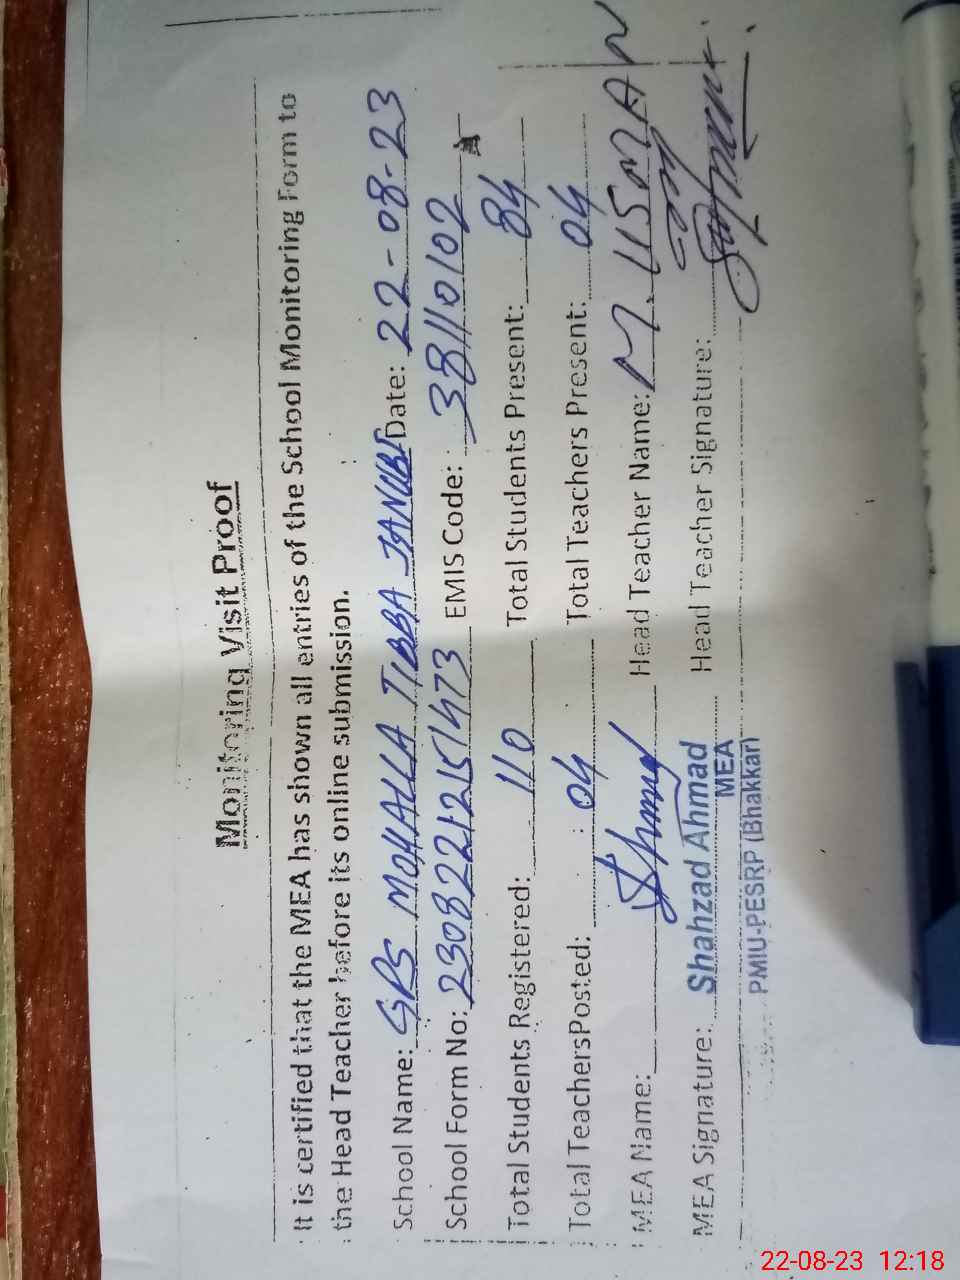 Monitoring Visit Proof
It is certified that the MEA has shown all entries of the School Monitoring Form to
the Head Teacher before its online submission.
School Name: GPS MOHALLA TIBBA JANUBI Date: 22-08-23
School Form No: 23082212151473 EMIS Code: 38110102
Total Students Registered: 110 Total Students Present: 84
Total TeachersPosted: 04 Total Teachers Present: 04
MEA Name: Head Teacher Name: M. USMAN
MEA Signature: Shahzad Ahmad Head Teacher Signature:
MEA
PMIU-PESRP (Bhakkar)
22-08-23 12:18